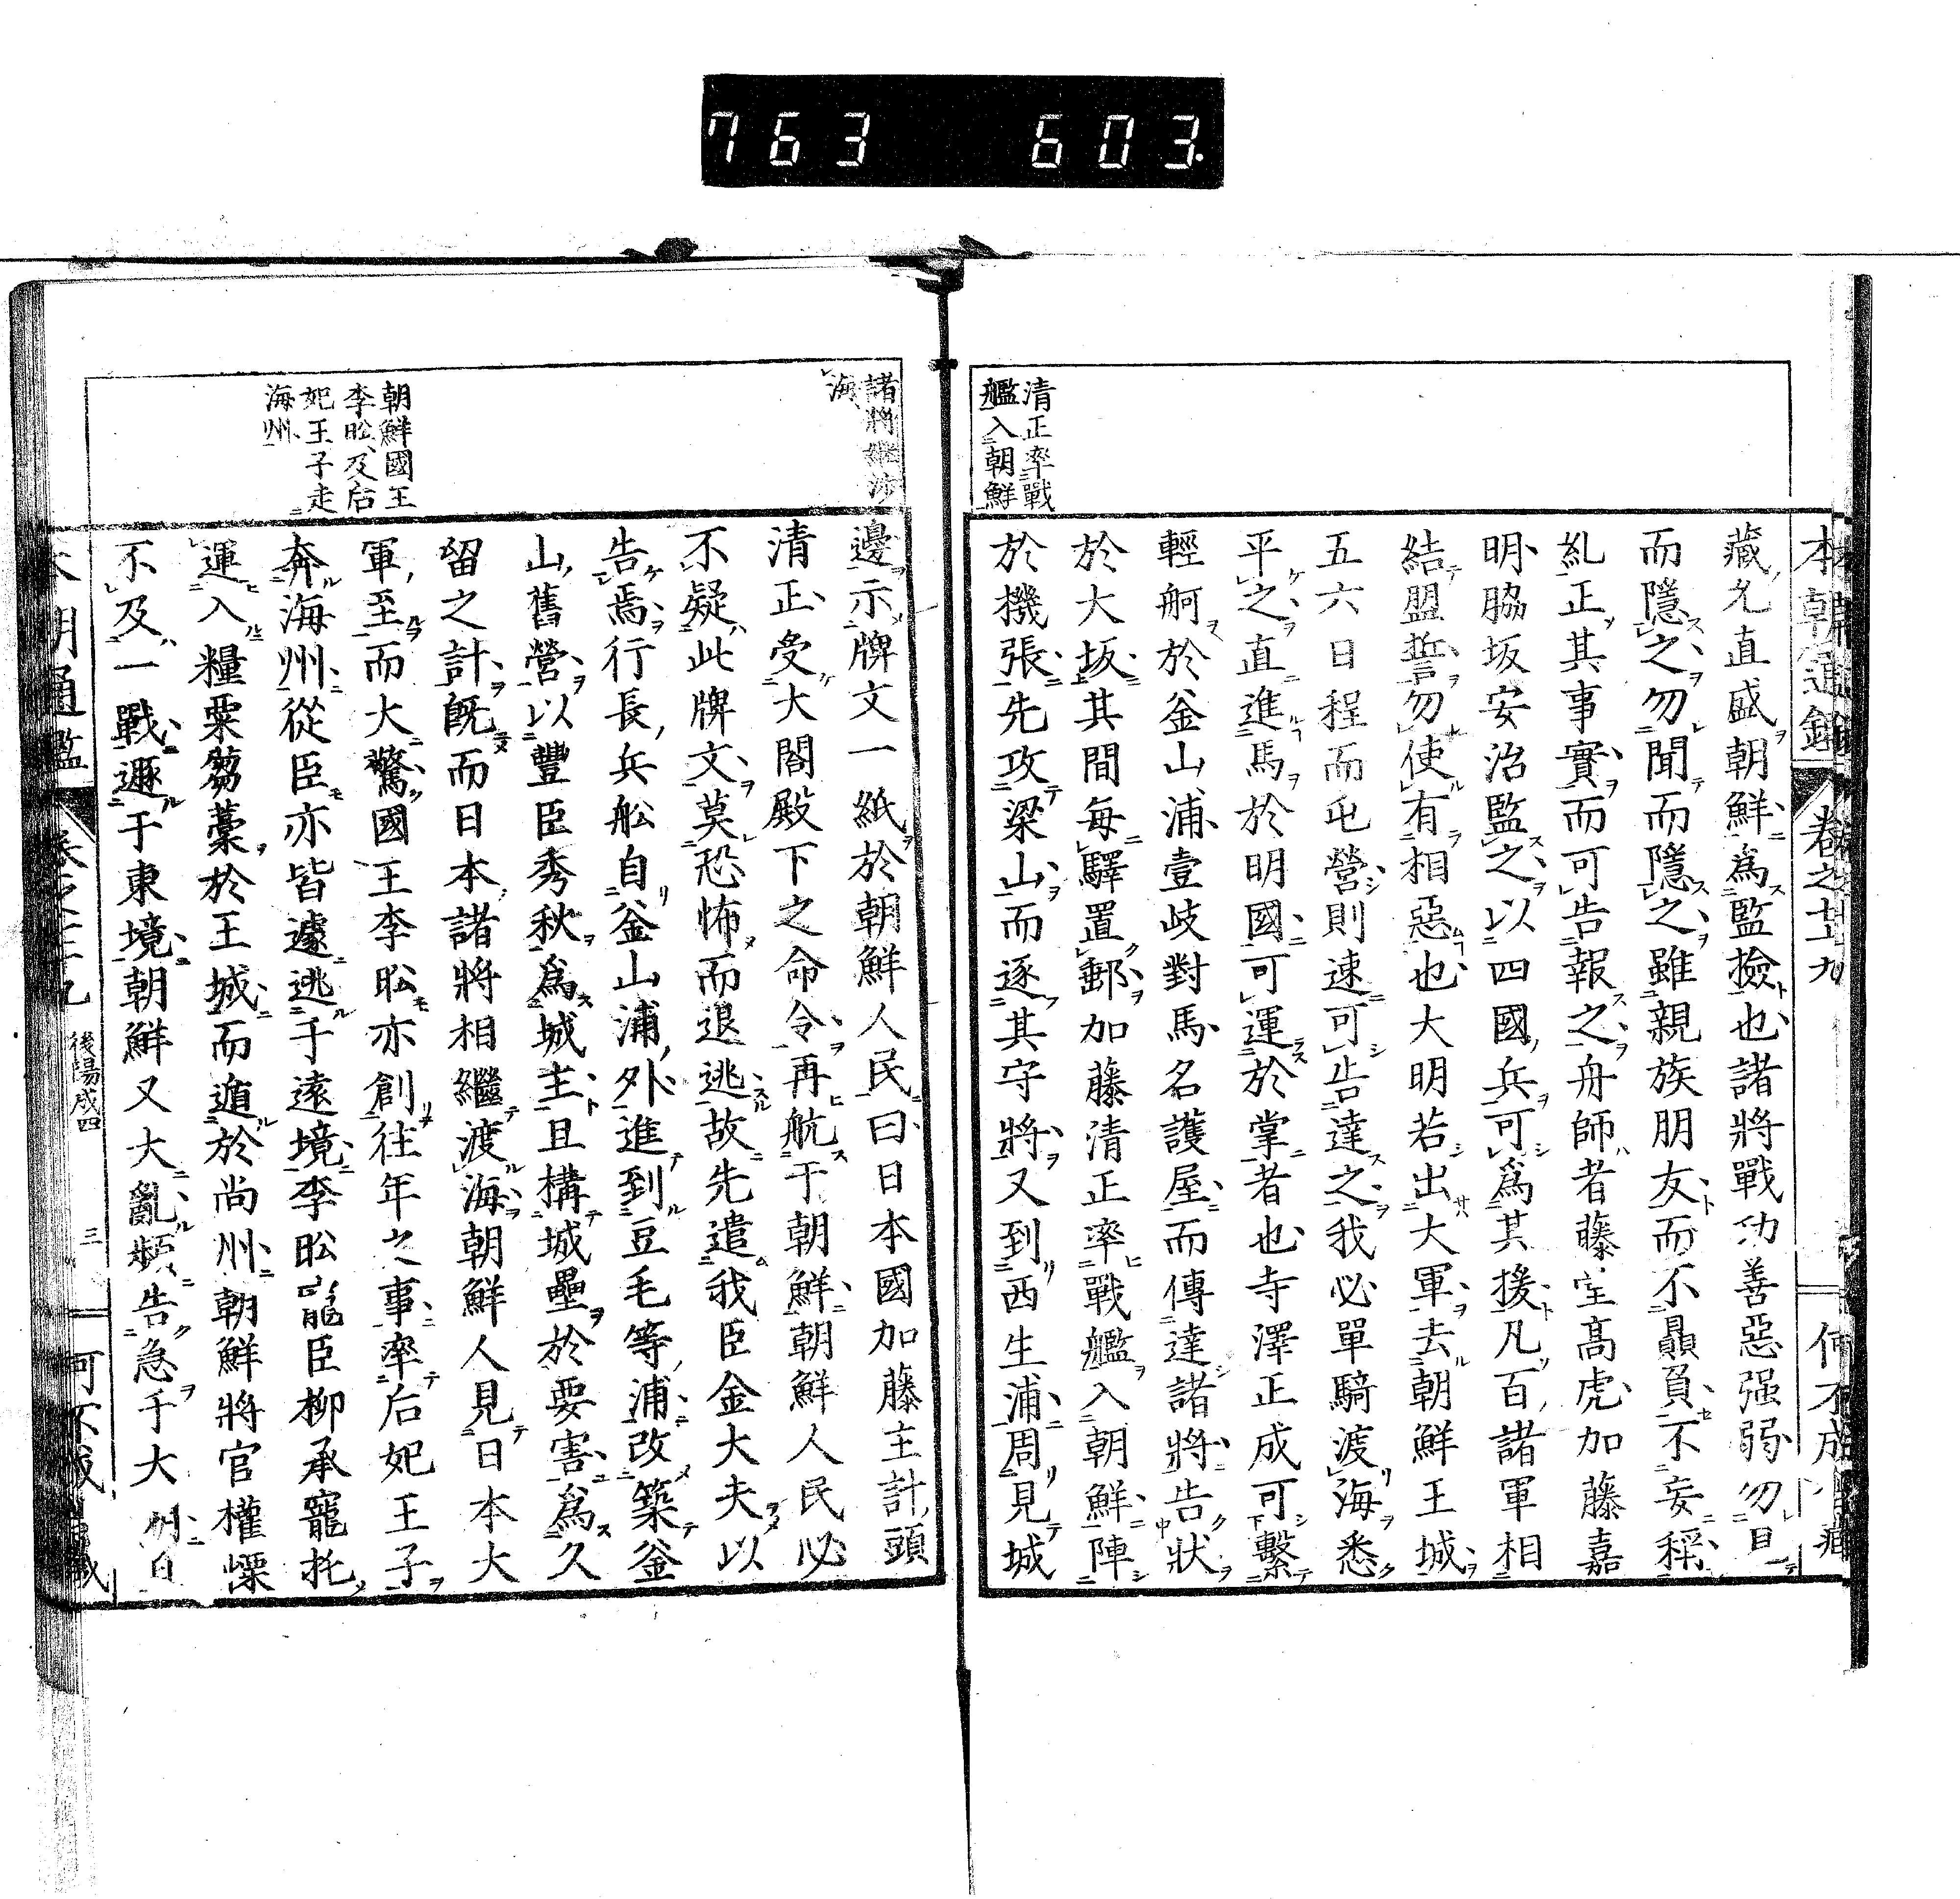 763 603.
本朝通鑑 卷之 九
藏允直盛朝鮮爲監撿也諸將戰功善惡强弱勿
而隱之勿聞而隱之雖親族朋友而不贔負不妄稱
糺正其事實而可告報之舟師者藤堂高虎加藤嘉
明脇坂安治監之以四國兵可爲其援凡百諸軍相
結盟誓勿使有相惡也大明若出大軍去朝鮮王城
五六日程而屯營則速可告達之我必單騎渡海悉
平之直進馬於明國可運於掌者也寺澤正成可繫
輕舸於釜山浦壹岐對馬名護屋而傳達諸將告狀
於大坂其間每驛置郵加藤清正率戰艦入朝鮮陣
於機張先攻梁山而逐其守將又到西生浦周見城
清正率戰
艦入朝鮮
邊示牌文一紙於朝鮮人民曰日本國加藤主計頭
清正受大閤殿下之命令再航于朝鮮朝鮮人民必
不疑此牌文莫恐怖而退逃故先遣我臣金大夫以
告焉行長兵舩自釜山浦外進到豆毛等浦改築釜
山舊營以豐臣秀秋爲城主且構城壘於要害爲久
留之計既而日本諸將相繼渡海朝鮮人見日本大
軍至而大驚國王李昖亦創往年之事率后妃王子
奔海州從臣亦皆遽逃于遠境李昖寵臣柳承寵托
運入糧粟芻藁於王城而遁於尚州朝鮮將官權慄
不及一戰遯于東境朝鮮又大亂頻告急于大
諸將繼渉
海
朝鮮國王
李昖及后
妃王子走
海州
後陽成四
三